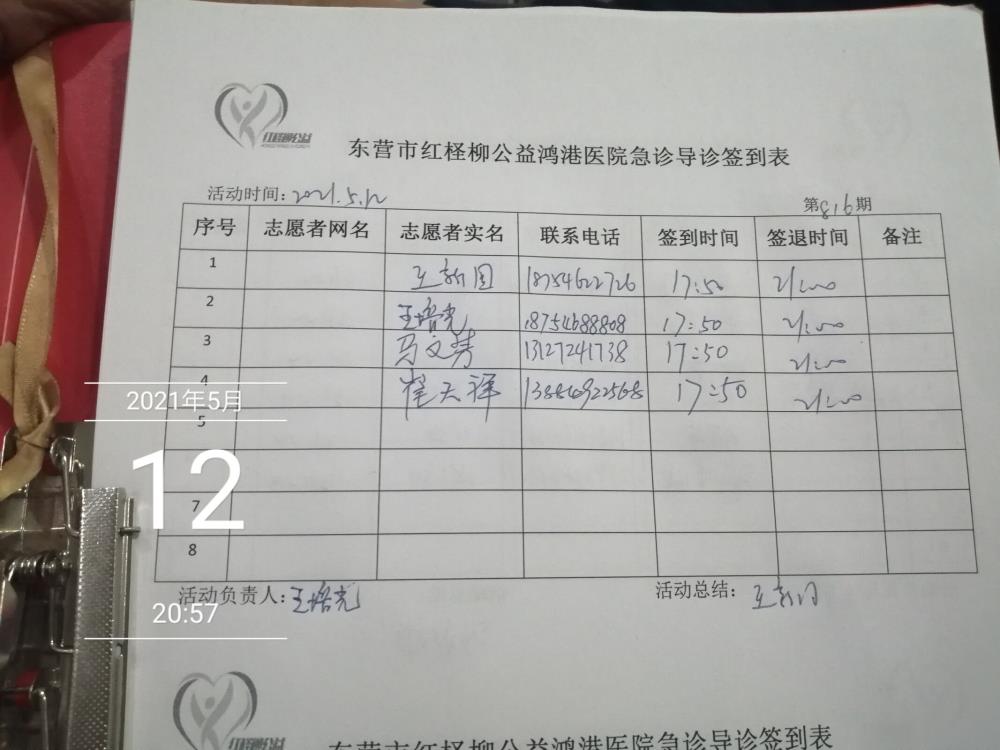 红柽柳公益
东营市红柽柳公益鸿港医院急诊导诊签到表
活动时间: 2021.5.12
第816期
序号 志愿者网名 志愿者实名 联系电话 签到时间 签退时间 备注
1 18754622726 17:50 21:00
2 王培光 18754688808 17:50 21:00
3 马文 13127241738 17:50 21:00
4 崔天祥 17:50 21:00
5
7
8
活动负责人: 王培光
活动总结:
2021年5月
12
20:57
东营市红柽柳公益鸿港医院急诊导诊签到表